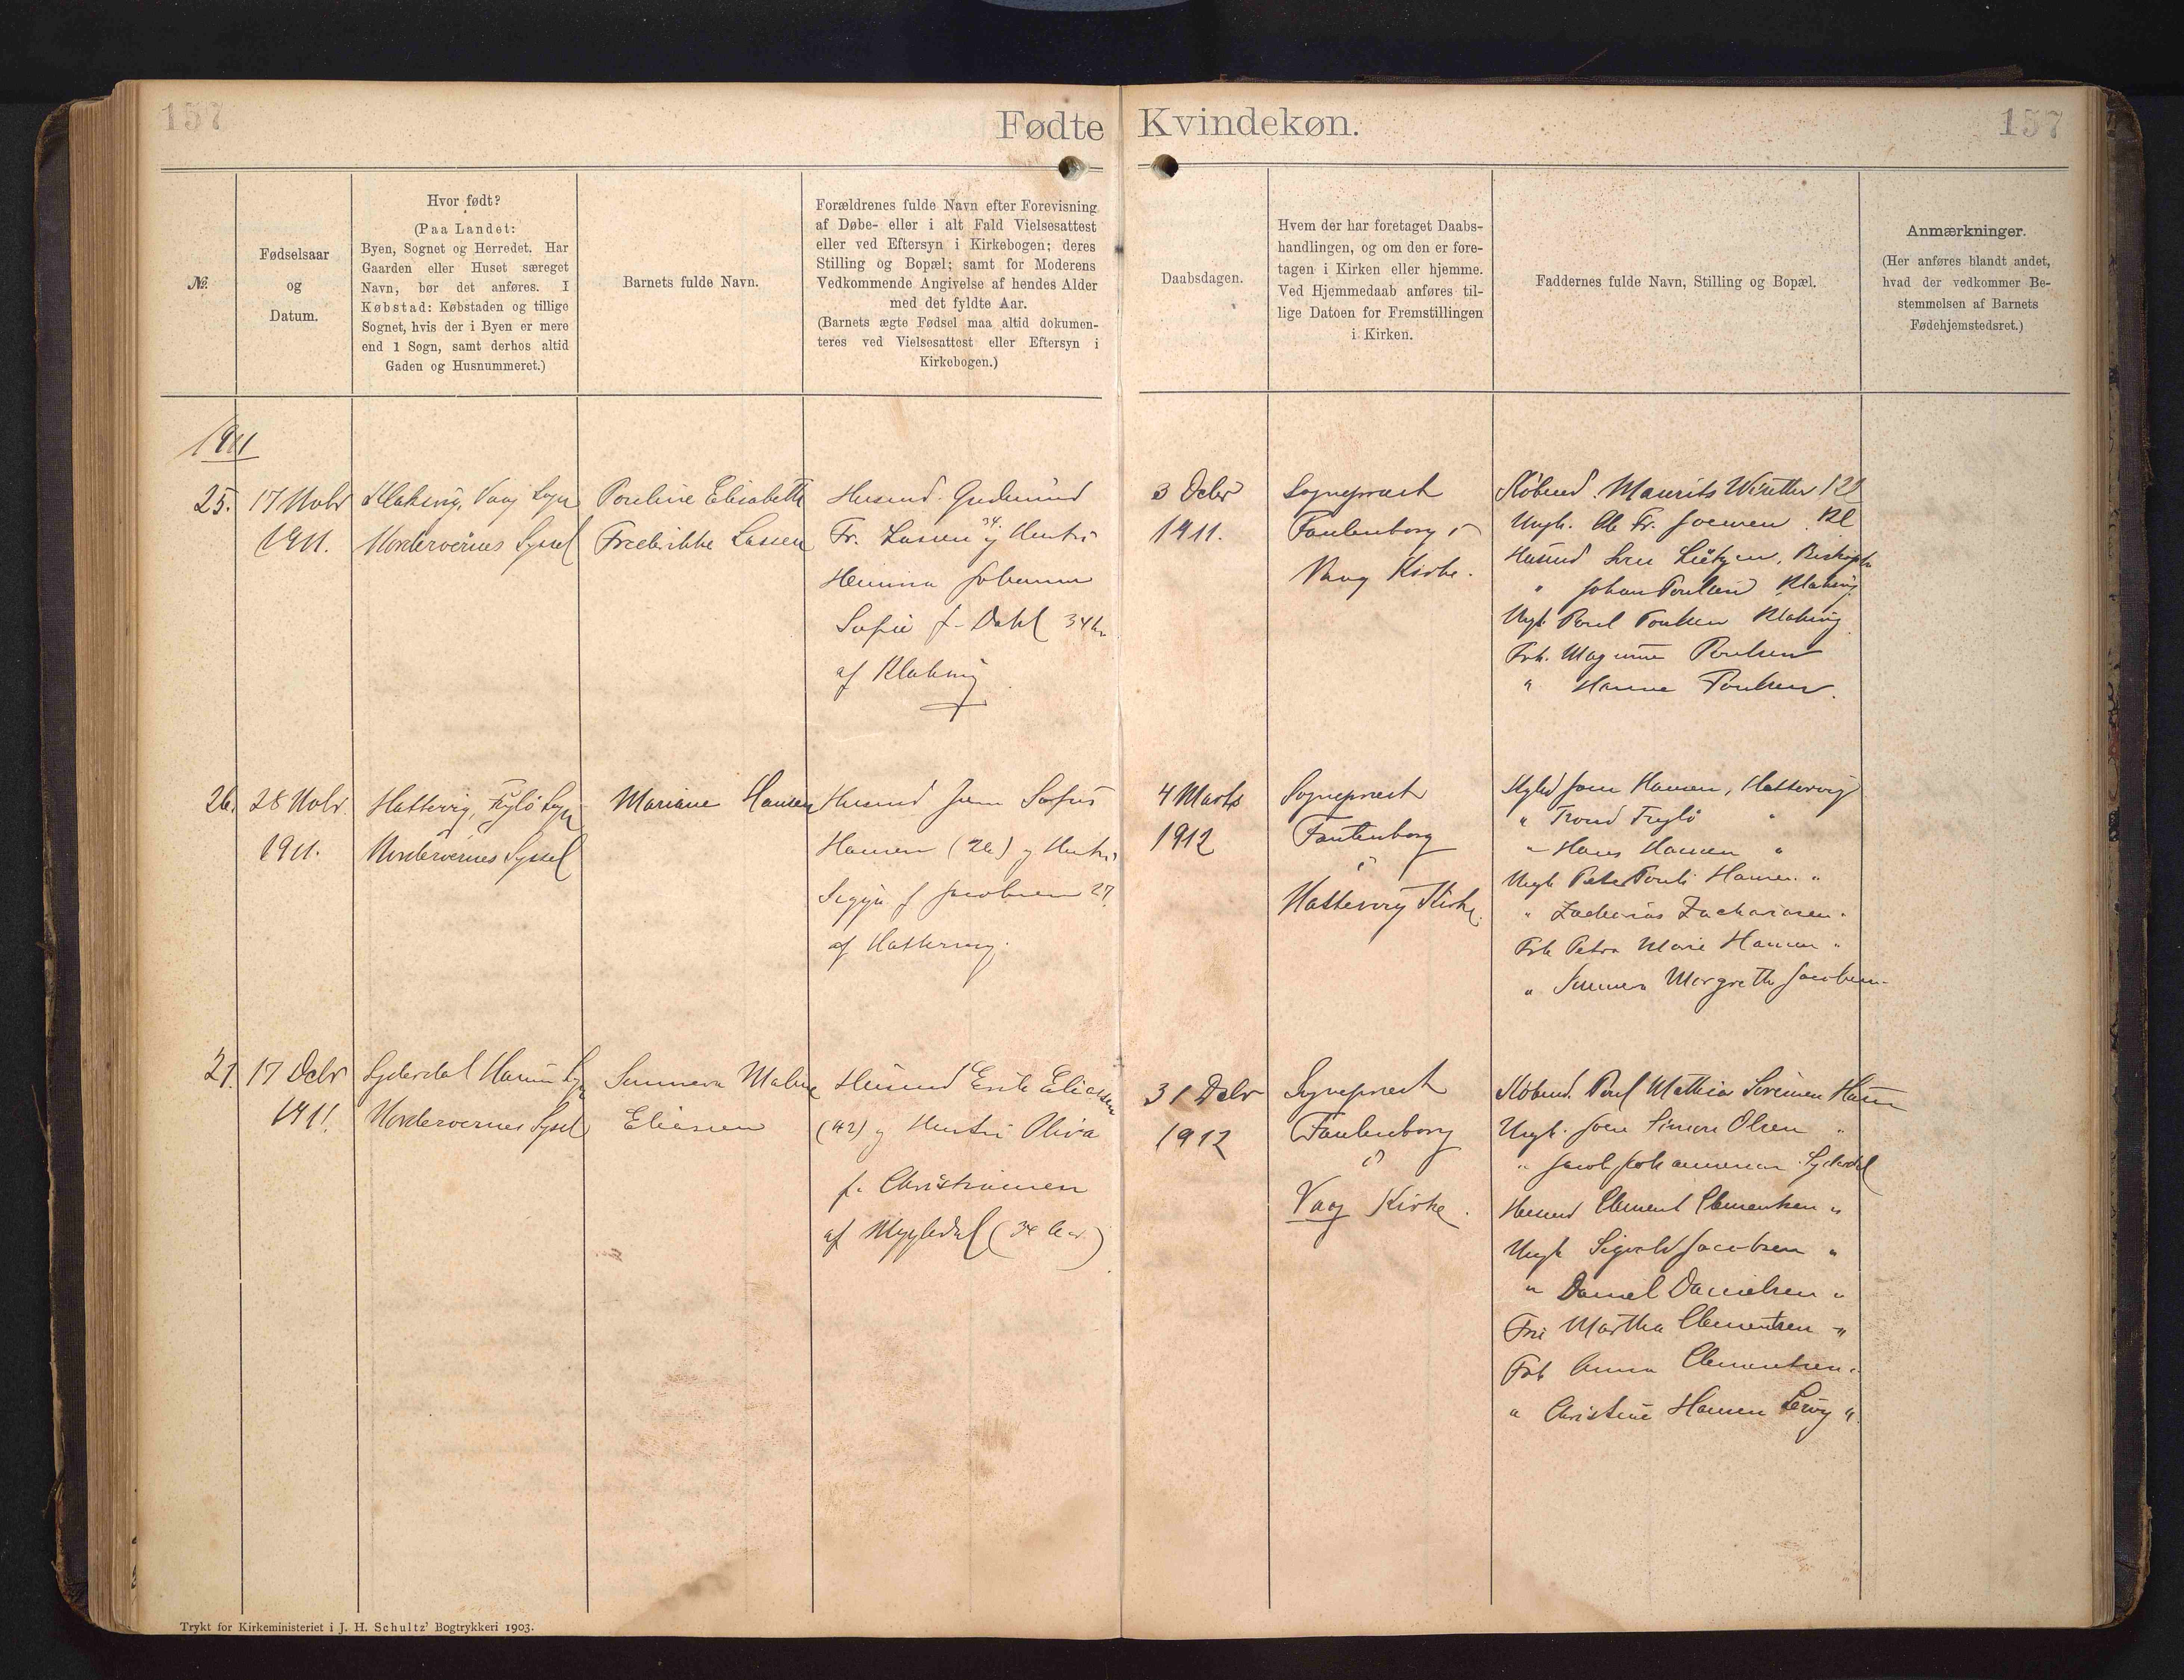 157
Fødte Kvindekøn.
157
№
Fødselsaar
og
Datum.
Hvor født?
(Paa Landet:
Byen, Sognet og Herredet. Har
Gaarden eller Huset særeget
Navn, bør det anføres. I
Købstad: Købstaden og tillige
Sognet, hvis der i Byen er mere
end 1 Sogn, samt derhos altid
Gaden og Husnummeret.)
Barnets fulde Navn.
Forældrenes fulde Navn efter Forevisning
af Døbe- eller i alt Fald Vielsesattest
eller ved Eftersyn i Kirkebogen; deres
Stilling og Bopæl; samt for Moderens
Vedkommende Angivelse af hendes Alder
med det fyldte Aar.
(Barnets ægte Fødsel maa altid dokumen-
teres ved Vielsesattest eller Eftersyn i
Kirkebogen.)
Daabsdagen.
Hvem der har foretaget Daabs-
handlingen, og om den er fore-
tagen i Kirken eller hjemme.
Ved Hjemmedaab anføres til-
lige Datoen for Fremstillingen
i Kirken.
Faddernes fulde Navn, Stilling og Bopæl.
Anmærkninger.
(Her anføres blandt andet,
hvad der vedkommer Be-
stemmelsen af Barnets
Fødehjemstedsret.)
1911
25.
17 Novbr
1911.
Klaksvig, Vaag Sogn
Norderøernes Syssel
Pouline Elisabeth
Frederikke Lassen
Husmd. Gudmund
Fr. Lassen 34 og Hustru
Hemma Johanna
Sofie f. Dahl 34
af Klaksvig
3 Decbr
1911.
Sognepræst
Fautenborg i
Vaag Kirke.
Købmd. Maurits
Ungk. Fr. Joensen Kl
Husmd
" Johan Poulsen Klaksvig
Ungk Poul Poulsen Klaksvig
Frk. Magnine Poulsen
" Hanne Poulsen.
26.
28 Novbr.
1911.
Hattervig, Fuglö Sogn
Norderøernes Syssel
Mariane Hansen
Husmd Joen Sofus
Hansen (26) og Hustru
f Jacobsen 27
af Hattervig.
4 Marts
1912
Sognepræst
Fautenborg
i
Hattervig Kirke.
Joen Hansen, Hattervig
" Trond Fuglö "
" Hans Hansen "
Ungk Peter Pouli Hansen "
" Zacharias Zachariasen "
Frk Petra Marie Hansen "
" Sunneva Margrethe Jacobsen "
27.
17 Decbr
1911
Syderdal Sogn
Norderøernes Syssel
Sunneva
Eliasen
Husmd Erik Eliasen
(42) og Hustru Oliva
f. Christiansen
af Mygledal (34 Aar)
31 Decbr
1912
Sognepræst
Fautenborg
i
Vaag Kirke.
Købmd. Poul Mathias Sørensen
Ungk. Joen Simon Olsen "
" Jacob Johannesen Syderdal
Husmd Clement Clementsen "
Ungk Sigvald Jacobsen "
" Daniel Danielsen "
Fru Martha Clementsen "
Frk Anna Clementsen "
" Christine Hansen "
Trykt for Kirkeministeriet i J. H. Schultz' Bogtrykkeri 1903.